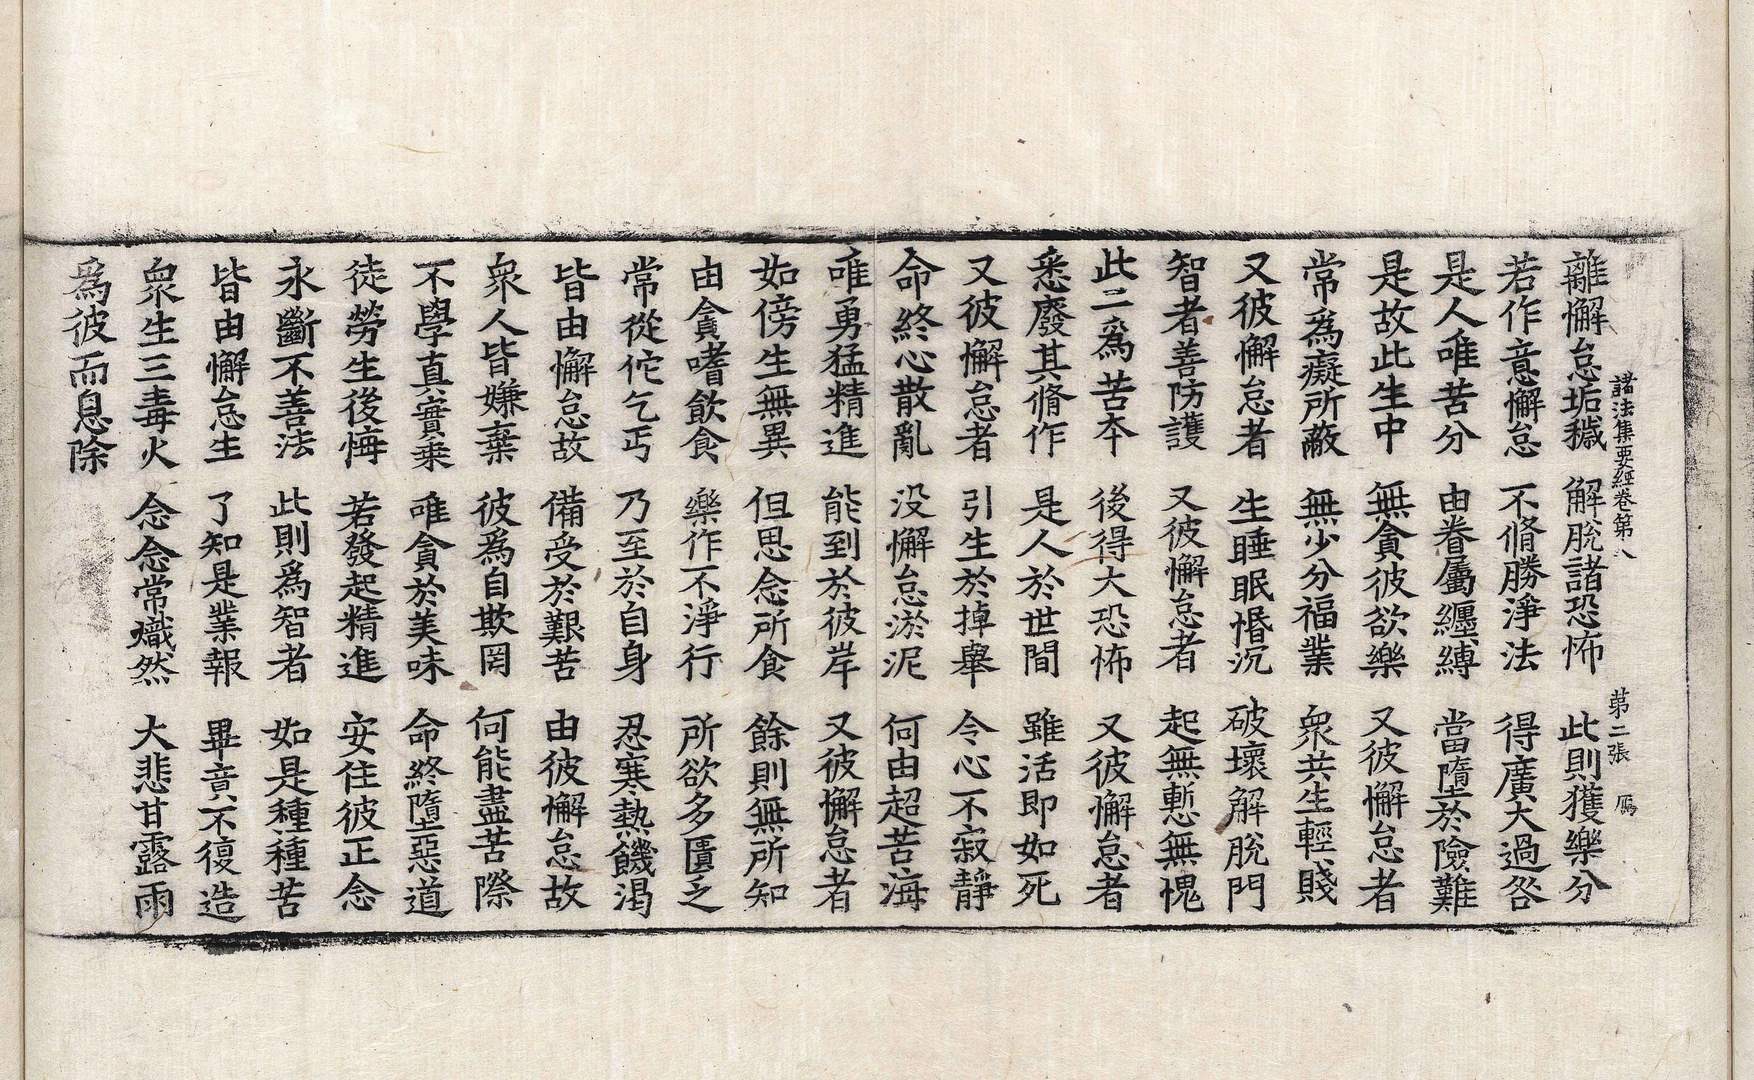 諸法集要經卷第八　第二張　鴈
離懈怠垢穢　解脫諸恐怖　此則獲樂分
若作意懈怠　不脩勝淨法　得廣大過咎
是人唯苦分　由眷屬纏縛　當墮於險難
是故此生中　無貪彼欲樂　又彼懈怠者
常爲癡所蔽　無少分福業　衆共生輕賤
又彼懈怠者　生睡眠惛沉　破壞解脫門
智者善防護　又彼懈怠者　起無慙無愧
此二爲苦本　後得大恐怖　又彼懈怠者
悉廢其脩作　是人於世間　雖活即如死
又彼懈怠者　引生於掉舉　令心不寂靜
命終心散亂　没懈怠淤泥　何由超苦海
唯勇猛精進　能到於彼岸　又彼懈怠者
如傍生無異　但思念所食　餘則無所知
由貪嗜飲食　樂作不淨行　所欲多匱之
常從佗乞丐　乃至於自身　忍寒熱飢渴
皆由懈怠故　備受於艱苦　由彼懈怠故
衆人皆嫌棄　彼爲自欺罔　何能盡苦際
不學真實乘　唯貪於美味　命終墮惡道
徒勞生後悔　若發起精進　安住彼正念
永斷不善法　此則爲智者　如是種種苦
皆由懈怠生　了知是業報　畢竟不復造
衆生三毒火　念念常熾然　大悲甘露雨
爲彼而息除